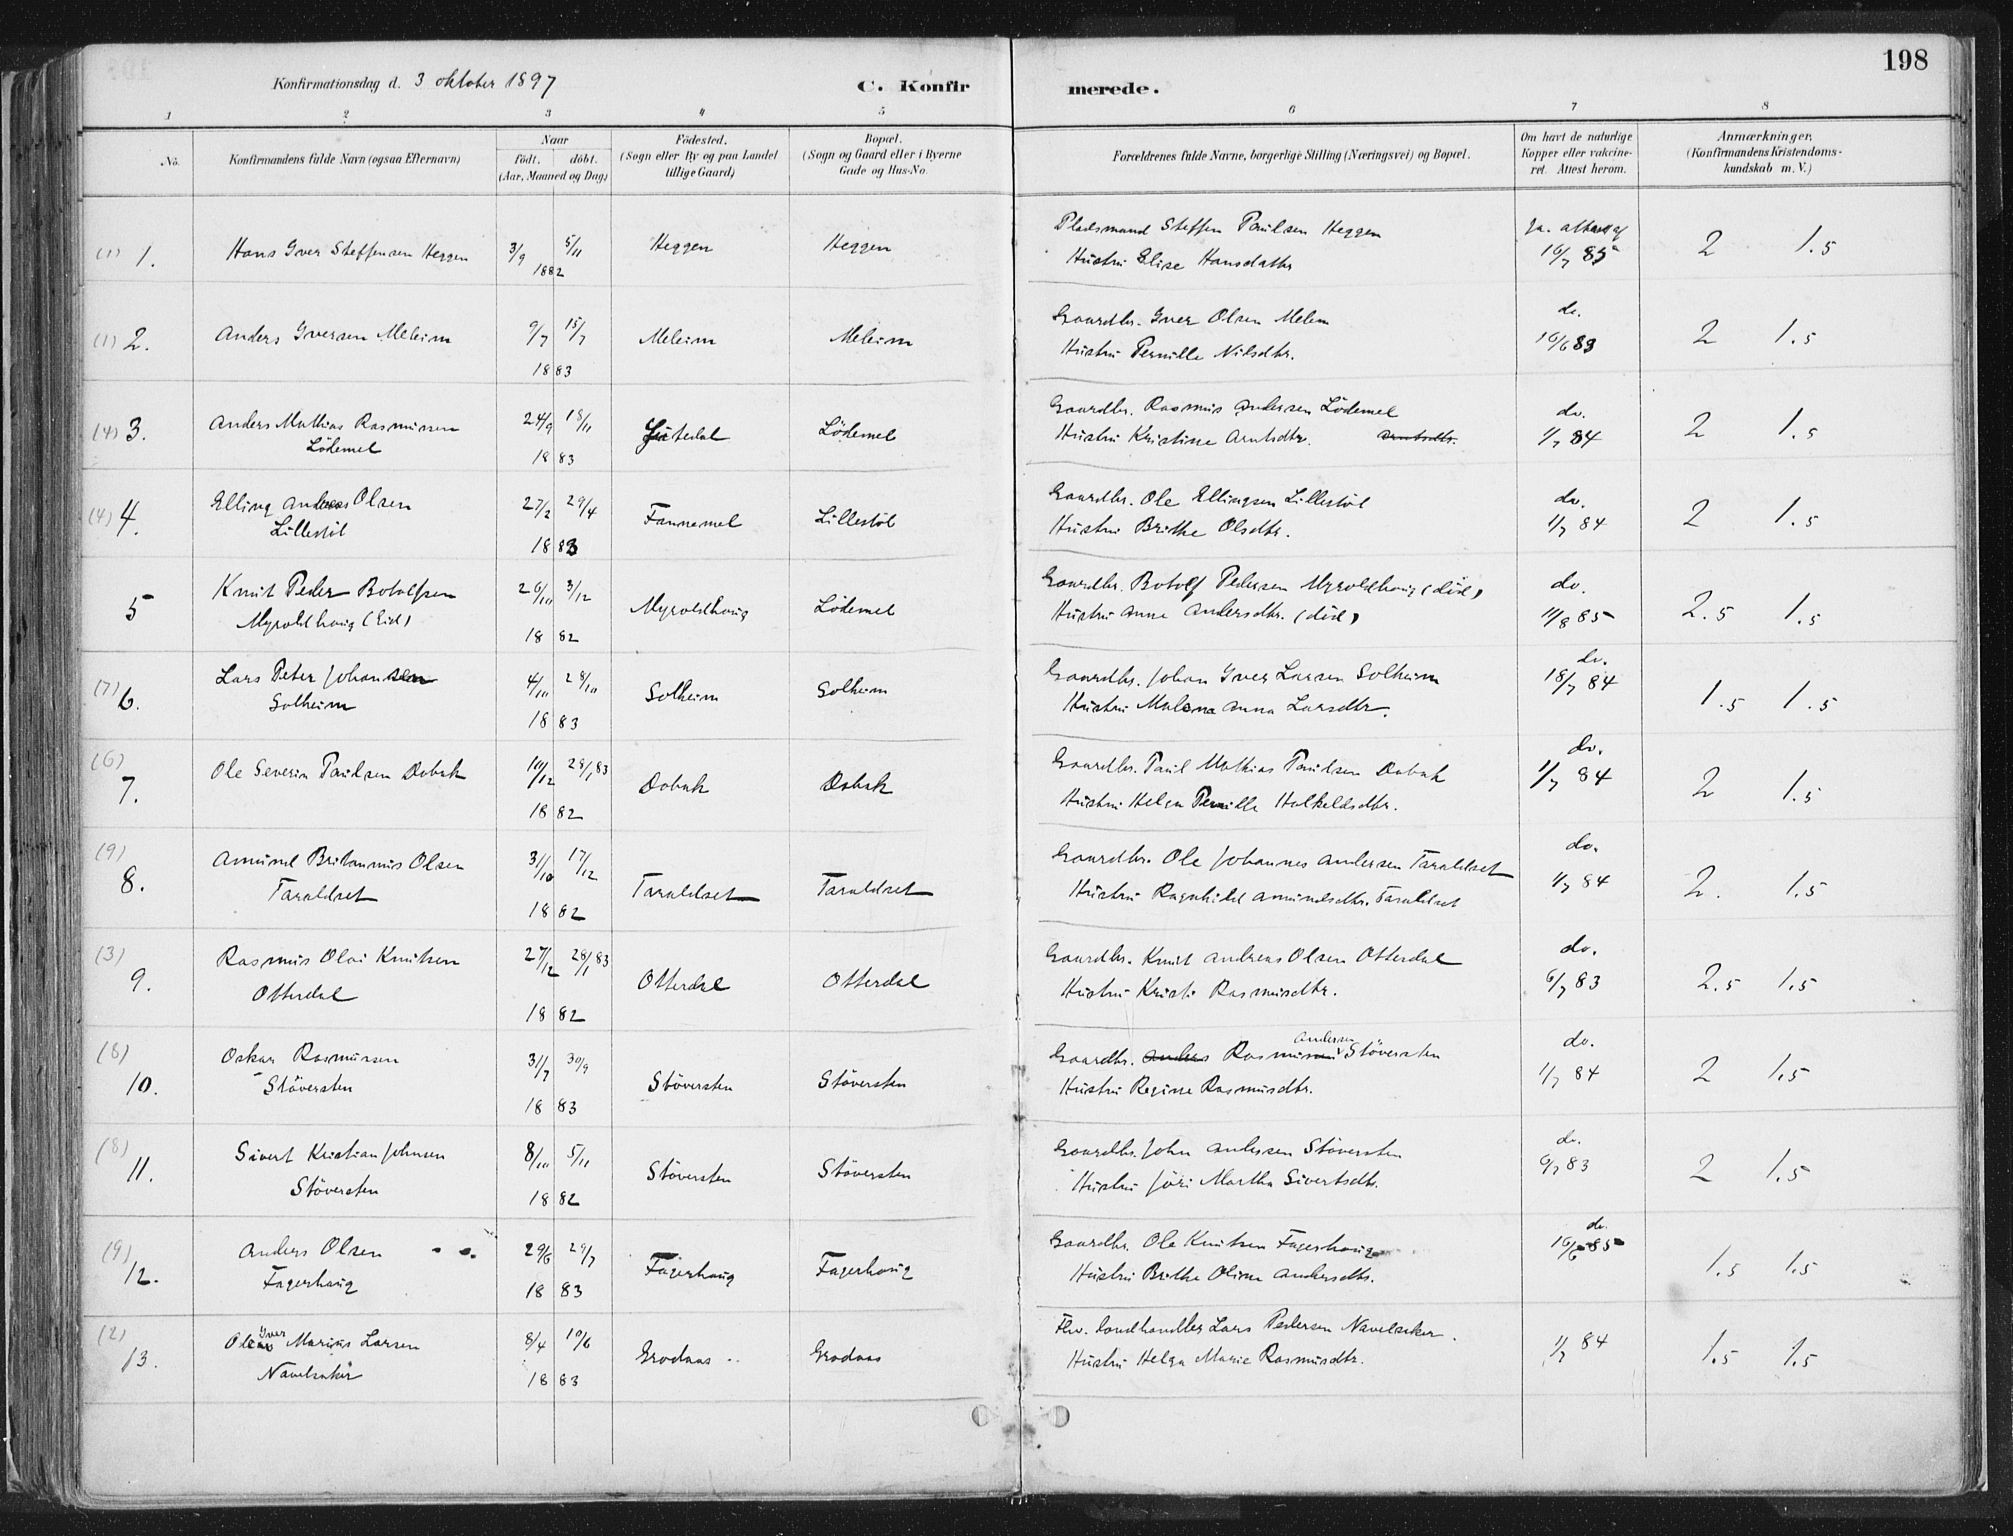 198
Konfirmationsdag d. 3 oktober 1897
C. Konfirmerede.
1 2 3 4 5 6 7 8
No.
Konfirmandens fulde Navn (ogsaa Efternavn)
Naar
födt. döbt.
(Aar, Maaned og Dag)
Födested.
(Sogn eller By og paa Landet
tillige Gaard)
Bopæl.
(Sogn og Gaard eller i Byerne
Gade og Hus-No.
Forældrenes fulde Navne, borgerlige Stilling (Næringsvei) og Bopæl.
Om havt de naturlige
Kopper eller vakcine-
ret. Attest herom.
Anmærkninger.
(Konfirmandens Kristendoms-
kundskab m. V.)
(1) 1. Hans Iver Steffensen Heggen 3/9 5/11 Heggen Heggen Pladsmand Steffen Paulsen Heggen Ja. attest af 2 1.5
1882 Hustru Elise Hansdatter 16/7 85
(1) 2. Anders Iversen Meleim 9/7 15/7 Meleim Meleim Gaardbr. Iver Olsen Melem do. 2 1.5
1883 Hustru Pernille Nilsdtr. 16/6 83
(4) 3. Anders Mathias Rasmussen 24/9 18/11 Lödemel Gaardbr. Rasmus Andersen Lödemel do. 2 1.5
Lödemel 1883 Hustru Kristine Arntsdtr. Arntsdtr. 1/7 84
(4) 4. Elling Andreas Olsen 27/2 29/4 Fannemel Lillestöl Gaardbr. Ole Ellingsen Lillestöl do. 2 1.5
Lillestöl 1883 Hustru Brithe Olsdtr. 1/7 84
5 Knut Peder Botolfsen 26/10 3/12 Myroldhoug Lödemel Gaardbr. Botolf Pedersen Myroldhoug (död) do. 2.5 1.5
Myroldhoug (Eid) 1882 Hustru Anne Andersdtr. (död) 11/8 85
(7) 6. Lars Peter Johansen 4/10 28/10 Solheim Solheim Gaardbr. Johan Iver Larsen Solheim do. 1.5 1.5
Solheim 1883 Hustru Malena Anna Larsdtr. 18/7 84
(6) 7. Ole Severin Paulsen Dobak 10/12 28/1 83 Dobak Dobak Gaardbr. Paul Mathias Paulsen Dobak do. 2 1.5
1882 Hustru Helga Pernille Halkeldsdtr. 1/7 84
(9) 8. Amund Britannus Olsen 31/10 17/12 Taraldset Taraldset Gaardbr. Ole Johannes Andersen Taraldset do. 2. 1.5
Taraldset 1882 Hustru Ragnhild Amundsdtr. Taraldset 1/7 84
(3) 9. Rasmus Olai Knutsen 27/12 28/1 83 Otterdal Otterdal Gaardbr. Knut Andreas Olsen Otterdal do. 2.5 1.5
Otterdal 1882 Hustru Kristi Rasmusdtr. 6/7 83
(8) 10. Oskar Rasmussen 31/7 30/9 Stöversten Stöversten Gaardbr. Anders Rasmus Andersen Stöversten do. 2 1.5
Stöversten 1883 Hustru Regine Rasmusdtr. 1/7 84
(8) 11. Sivert Kristian Johnsen 8/10 5/11 Stöversten Stöversten Gaardbr. John Andersen Stöversten do. 2 1.5
Stöversten 1882 Hustru Jöri Martha Sivertsdtr. 6/7 83
(9) 12. Anders Olsen 29/6 29/7 Fagerhaug Fagerhaug Gaardbr. Ole Knutsen Fagerhaug do. 1.5 1.5
Fagerhaug 1883 Hustru Brithe Oline Andersdtr. 16/6 85
(2) 13. Iver Marius Larsen 8/4 10/6 Grodaas Grodaas Fhv. Landhandler Lars Pedersen Navelsaker. 1/7 84 1.5 1.5
Navelsaker 1883 Hustru Helga Marie Rasmusdtr.